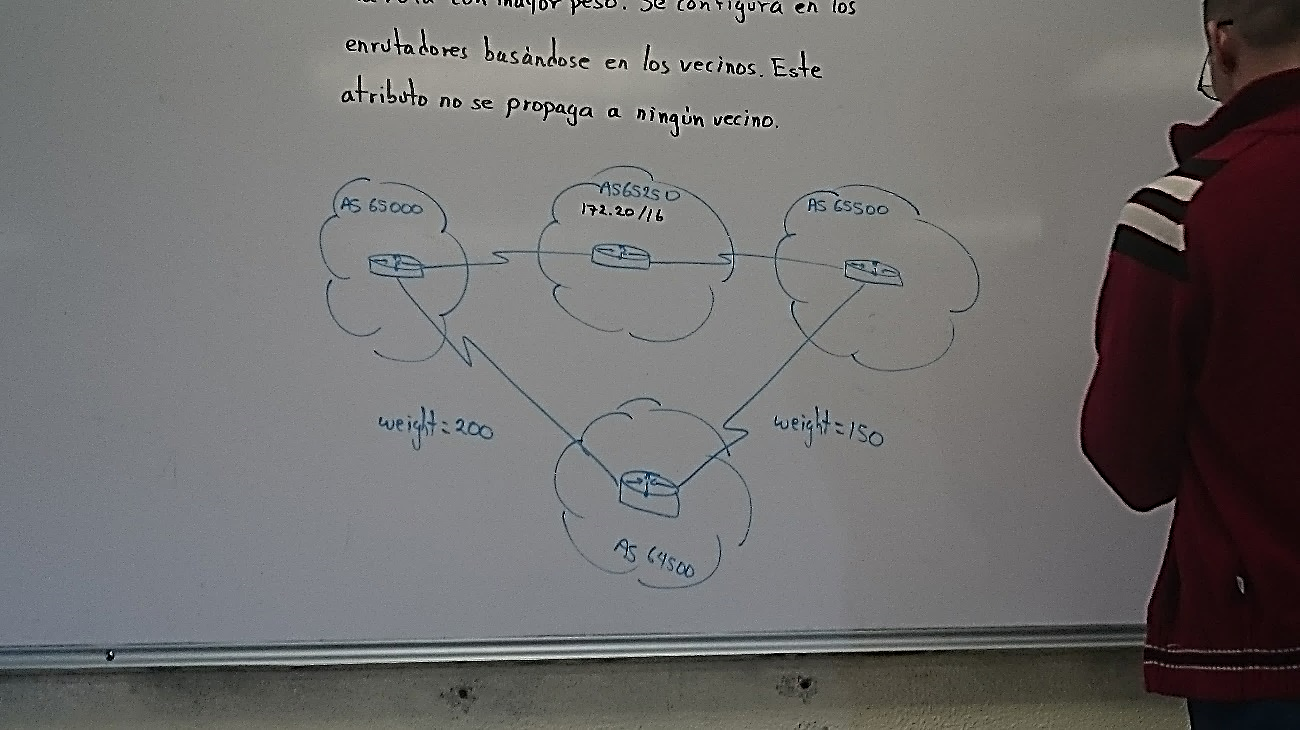 la ruta con mayor peso. Se configura en los
enrutadores basándose en los vecinos. Este
atributo no se propaga a ningún vecino.
AS 65000
AS65250
172.20/16
AS 65500
weight=200
weight=150
AS 64500